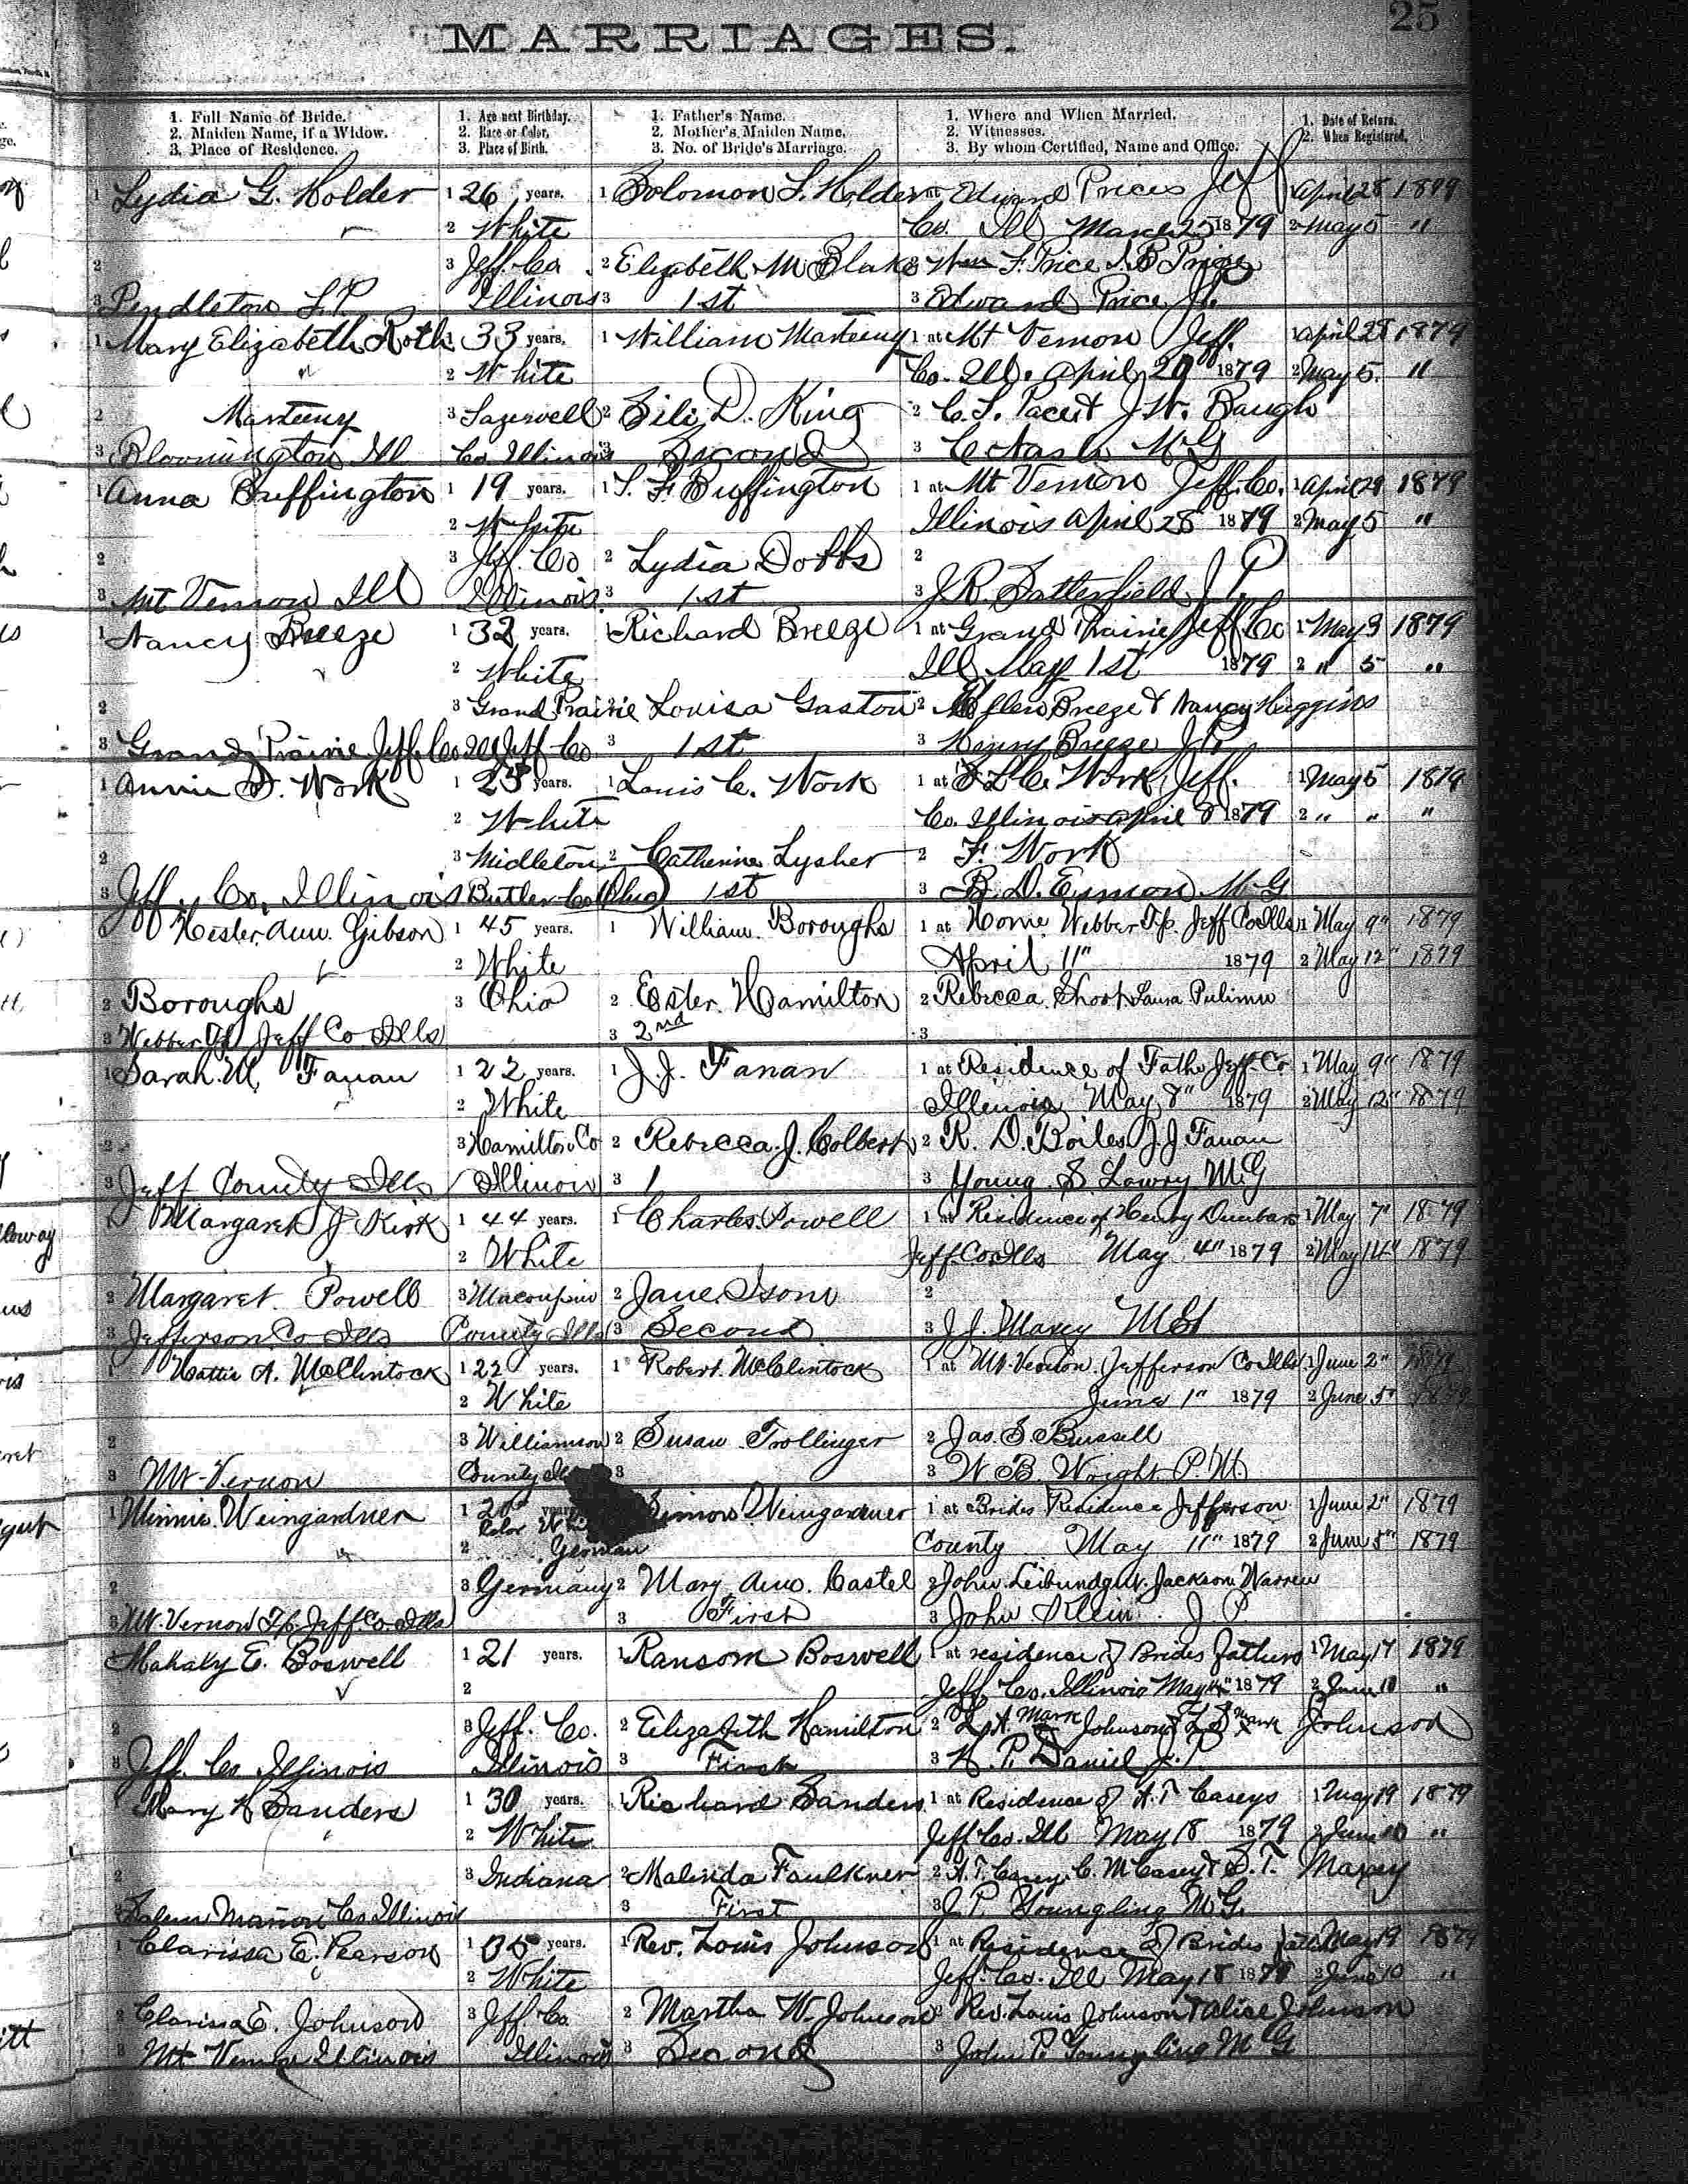 25
MARRIAGES.
1. Full Name of Bride. 1. Age next Birthday. 1. Father's Name. 1. Where and When Married. 1. Date of Return.
2. Maiden Name, if a Widow. 2. Race or Color. 2. Mother's Maiden Name. 2. Witnesses. 2. When Registered.
3. Place of Residence. 3. Place of Birth. 3. No. of Bride's Marriage. 3. By whom Certified, Name and Office.
1 Lydia G. Holder 1 26 years. 1 Solomon L. Holder 1 at Edward Prices Jeff 1 April 28 1879
2 White Co. Ill March 25 1879 2 May 5 "
2 3 Jeff. Co. 2 Elizabeth M Blake 2 Wm F. Price
3 Pendleton Illinois 3 1st 3 Edward Price J.P.
1 Mary Elizabeth Roth 1 33 years. 1 William Marteeny 1 at Mt Vernon Jeff. 1 April 28 1879
2 White Co. Ill. April 20 1879 2 May 5. "
2 Marteeny 3 Tazewell 2 D. King 2 C. T. Pace & J. W. Baugh
3 Bloomington Ill Co. Illinois 3 Second 3 C Nash M G
1 Anna Buffington 1 19 years. 1 S. F. Buffington 1 at Mt Vernon Jeff. Co. 1 April 29 1879
2 White Illinois April 28 1879 2 May 5 "
2 3 Jeff. Co 2 Lydia Dobbs 2
3 Mt Vernon Ill Illinois. 3 1st 3 J. R. Satterfield J. P.
1 Nancy Breeze 1 32 years. 1 Richard Breeze 1 at Grand Prairie Jeff Co 1 May 3 1879
2 White Ill May 1st 1879 2 " 5 "
2 3 Grand Prairie 2 Louisa Gaston 2 Breeze & Nancy Huggins
3 Grand Prairie Jeff. Co Ill Jeff Co 3 1st 3 Breeze J. P.
1 Annie D. Work 1 23 years. 1 Louis C. Work 1 at L C. Work, Jeff. 1 May 5 1879
2 White Co. Illinois April 8 1879 2 " " "
2 3 Midleton 2 Catherine Lysher 2 F. Work
3 Jeff. Co. Illinois Butler Co Ohio 3 1st 3 B. D. Eymon M G
1 Hester Ann. Gibson 1 45 years. 1 William. Boroughs 1 at Home Webber Tp. Jeff Co Ills 1 May 9" 1879
2 White April 11" 1879 2 May 12" 1879
2 Boroughs 3 Ohio 2 Ester. Hamilton 2 Rebecca. Laura
3 Webber Tp Jeff Co Ills 3 2nd 3
1 Sarah. M. Fanan 1 22 years. 1 J. J. Fanan 1 at Residence of Father Jeff. Co 1 May 9" 1879
2 White Illinois May 8" 1879 2 May 12" 1879
2 3 Hamilton Co 2 Rebecca. J. Colbert 2 R. D. Boiles J. J. Fanan
3 Jeff County Ills Illinois 3 1 3 Young S. Lowry M. G
1 Margaret J Kirk 1 44 years. 1 Charles. Powell 1 at Residence of Henry Dunbars 1 May 7" 1879
2 White Jeff. Co Ills May 4" 1879 2 May 14" 1879
2 Margaret. Powell 3 Macoupin 2 Jane. Isom 2
3 Jefferson. Co Ills County Ills 3 Second 3 J. J. Maxey
1 Hattie A. McClintock 1 22 years. 1 Robert. McClintock 1 at Mt. Vernon. Jefferson Co Ills 1 June 2" 1879
2 White June 1" 1879 2 June 5" 1879
2 3 Williamson 2 Susan. Trollinger 2 Jas. S. Bussell
3 Mt-Vernon County Ills 3 3 W B. Wright P. M.
1 Minnie. Weingardner 1 20 years Simon. Weingardner 1 at Brides Residence Jefferson 1 June 2" 1879
Color
2 German County May 11" 1879 2 June 5" 1879
2 3 Germany 2 Mary Ann. Castel 2 John. Leibundgut. Jackson Warren
3 Mt. Vernon Tp. Jeff. Co. Ills 3 First 3 John Klein J P
Mahaly E. Boswell 1 21 years. 1 Ransom Boswell 1 at residence of Brides fathers 1 May 17 1879
2 Jeff. Co. Illinois May 1879 2 June 10 "
2 3 Jeff. Co. 2 Elizabeth Hamilton 2 mark Johnson & mark Johnson
3 Jeff. Co Illinois Illinois 3 First 3 H. P. Daniel J. P.
1 Mary H Sanders 1 30 years. 1 Richard Sanders 1 at Residence of A. T Caseys 1 May 19 1879
2 White Jeff Co. Ill May 18 1879 2 June 10 "
2 3 Indiana 2 Malinda Faulkner 2 A. T. Casey, C. M Casey & S. T. Maxey
3 Salem Marion Co Illinois 3 First 3 J. P. Youngling M G.
1 Clarissa E. Pearson 1 35 years. 1 Rev. Louis Johnson 1 at Residence of Brides father May 19 1879
2 White Jeff. Co. Ill May 18 1879 2 June 10 "
2 Clarissa E. Johnson 3 Jeff. Co. 2 Martha W. Johnson 2 Rev. Louis Johnson & Alice Johnson
3 Mt Vernon Illinois Illinois 3 Second 3 John P. Youngling M G